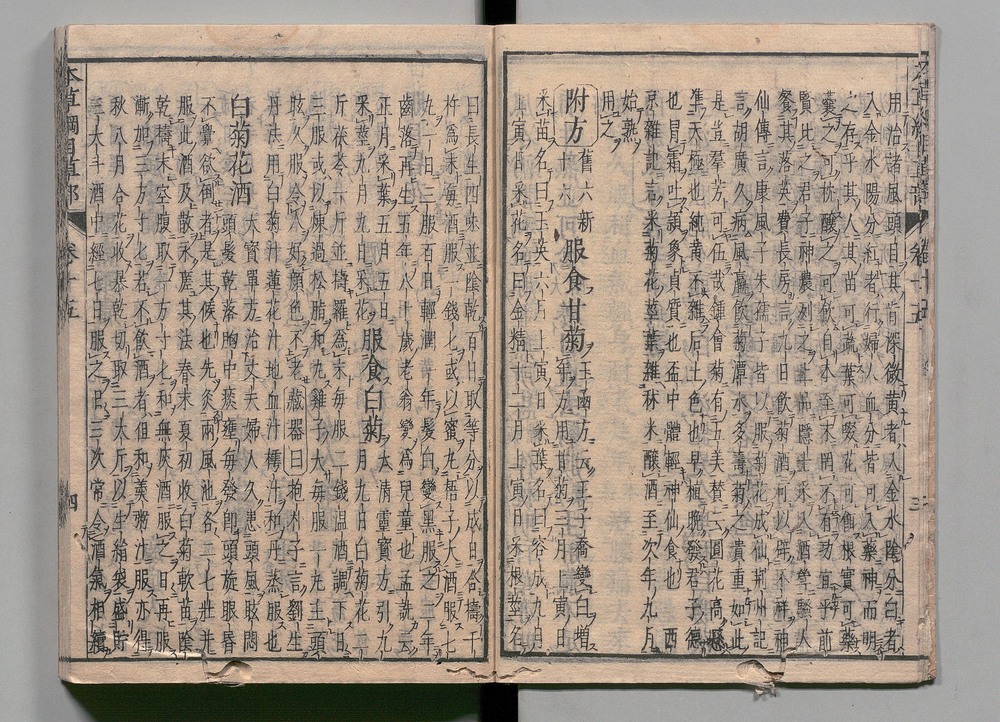 本草綱目草部 卷十五 三
用治諸風頭目其旨深微黃者入金水陰分白者
入金水陽分紅者行婦人血分皆可入藥神而明
之存乎其人其苗可蔬葉可啜花可餌根實可藥
囊之可枕釀之可飲自本至末罔不有功宜乎前
賢比之君子神農列之上品隱士采入酒斝騷人
餐其落英費長房言九日飲菊酒可以辟不祥神
仙傳言康風子朱孺子皆以服菊花成仙荊州記
言胡廣久病風羸飲菊潭水多壽菊之貴重如此
是豈羣芳可伍哉鍾會菊有五美贊云圓花高懸
準天極也純黃不雜后土色也早植晚發君子德
也冒霜吐穎象貞質也盃中體輕神仙食也 西
京雜記言采菊花莖葉雜秫米釀酒至次年九月
始熟
用之
附方 舊六新十六 服食甘菊 玉函方云王子喬變白增年方用甘菊三月上寅日
采苗名曰玉英六月上寅日采葉名曰容成九月
上寅日采花名曰金精十二月上寅日采根莖名
曰長生四味並陰乾百日取等分以成日合擣千
杵爲末每酒服一錢匕或以蜜丸梧子大酒服七
丸一日三服百日輕潤一年髮白變黑服之二年
齒落再生五年八十歲老翁變爲兒童也孟詵云
正月采葉五月五日
采莖九月九日采花 服食白菊 太清靈寶方引九月九日白菊花二
斤茯苓一斤並擣羅爲末每服二錢温酒調下日
三服或以煉過松脂和丸雞子大每服一丸主頭
眩久服令人好顏色不老 藏器曰抱朴子言劉生
丹法用白菊汁蓮花汁地血汁樗汁和丹蒸服也
白菊花酒 天寶單方治丈夫婦人久患頭風眩悶
頭髮乾落胸中痰壅每發即頭旋眼昏
不覺欲倒者是其候也先灸兩風池各二七壯并
服此酒及散永瘥其法春末夏初收白菊軟苗陰
乾擣末空腹取一方寸匕和無灰酒服之日再服
漸加三方寸匕若不飲酒者但和羹粥汁服亦得
秋八月合花收暴乾切取三大斤以生絹袋盛貯
三大斗酒中經七日服之日三次常令酒氣相續
本草綱目草部 卷十五 四